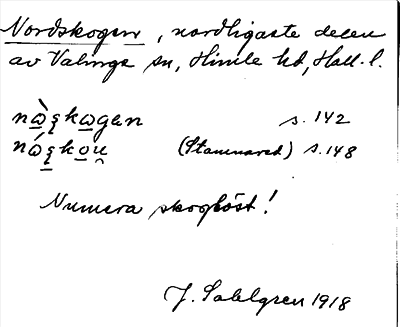 Nordskogen, nordligaste delen
av Valinge sn, Himle hd, Hall. l.
nὼ̲ȿkω̲gen s. 142
nώ̲ȿko̲u̯ (Stamnared) s. 148
Numera skoglöst!
J. Sahlgren 1918